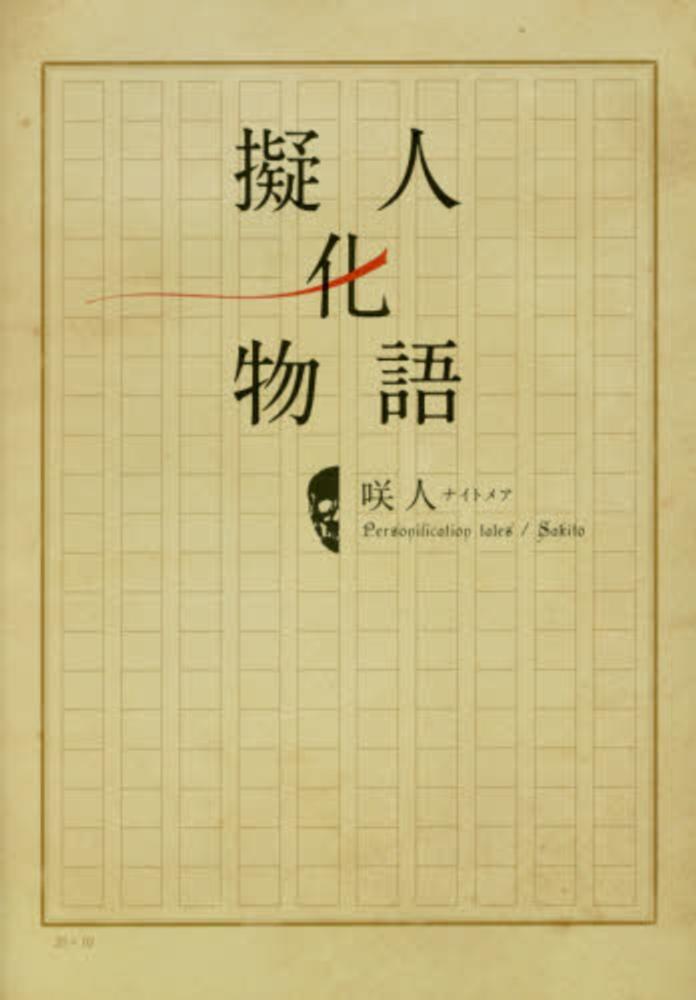 擬人
化
物語
咲人ナイトメア
Personification tales / Sakito